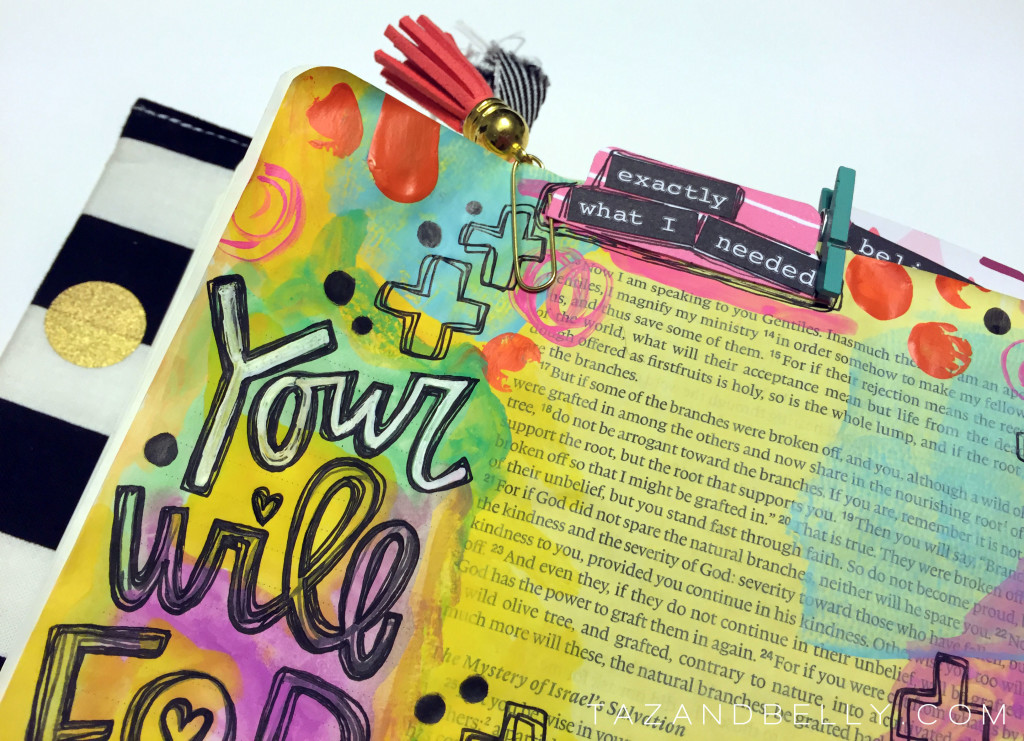 exactly
what I
needed
beli
Your
will
FOR
Now I am speaking to you Gentiles. Inasmuch the am an ap
I magnify my ministry 14 in order somehow to make my fellow
us, and thus save some of them. 15 For if their rejection means the rec
of the world, what will their acceptance mean but life from the dea
dough offered as firstfruits is holy, so is the whole lump, and if the root
the branches.
17 But if some of the branches were broken off, and you, although a wild ol
were grafted in among the others and now share in the nourishing root of
tree, 18 do not be arrogant toward the branches. If you are, remember it is not
support the root, but the root that supports you. 19 Then you will say, "Branc
broken off so that I might be grafted in." 20 That is true. They were broken off
of their unbelief, but you stand fast through faith. So do not become proud,
21 For if God did not spare the natural branches, neither will he spare you. 22 No
the kindness and the severity of God: severity toward those who have fallen, bu
kindness to you, provided you continue in his kindness. Oth you too will
off. 23 And even they, if they do not continue in their unbelief, will be
God has the power to graft them in again. 24 For if you were
wild olive tree, and grafted, contrary to nature, into a
much more will these, the natural branches, be grafted back
The Mystery of Israel's Salvation
you be wise in your
TAZANDBELLY.COM